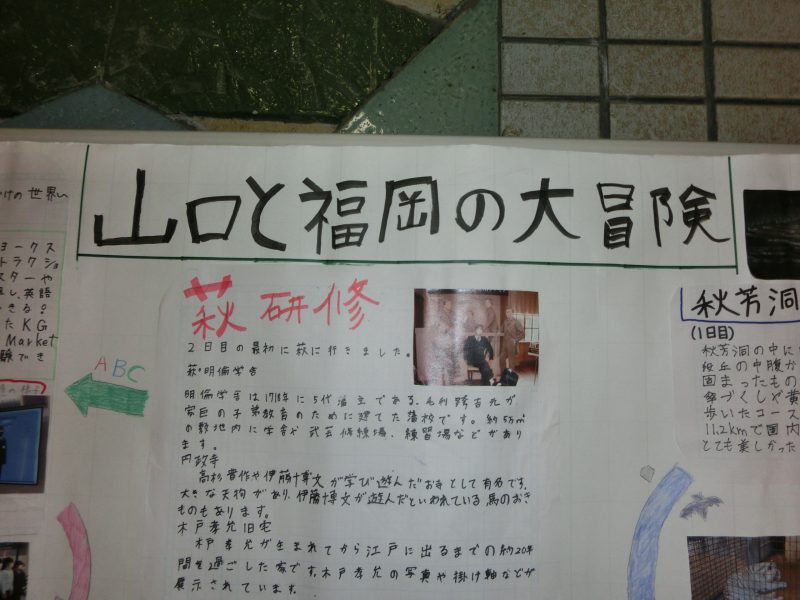 山口と福岡の大冒険
かけの世界へ
ョークス
トラクショ
スターや
英語
きる!
たKG
Market
験でき
ABC
萩研修
2日目の最初に萩に行きました。
萩・明倫学舎
明倫学舎は1718年に5代藩主である、毛利吉元が
家臣の子弟教育のために建てた藩校です。約5万㎡
の敷地内に学舎や武芸修練場、練習場などがあり
ます。
円政寺
高杉晋作や伊藤博文が学び遊んだお寺として有名です。
大きな天狗があり、伊藤博文が遊んだといわれている馬のおき
ものもあります。
木戸孝允旧宅
木戸孝允が生まれてから江戸に出るまでの約20年
間を過ごした家です。木戸孝允の写真や掛け軸などが
展示されています。
秋芳洞
(1日目)
秋芳洞の中に
丘の中腹か
固まったもの
歩いたコース
11.2kmで国内
とても美しかった